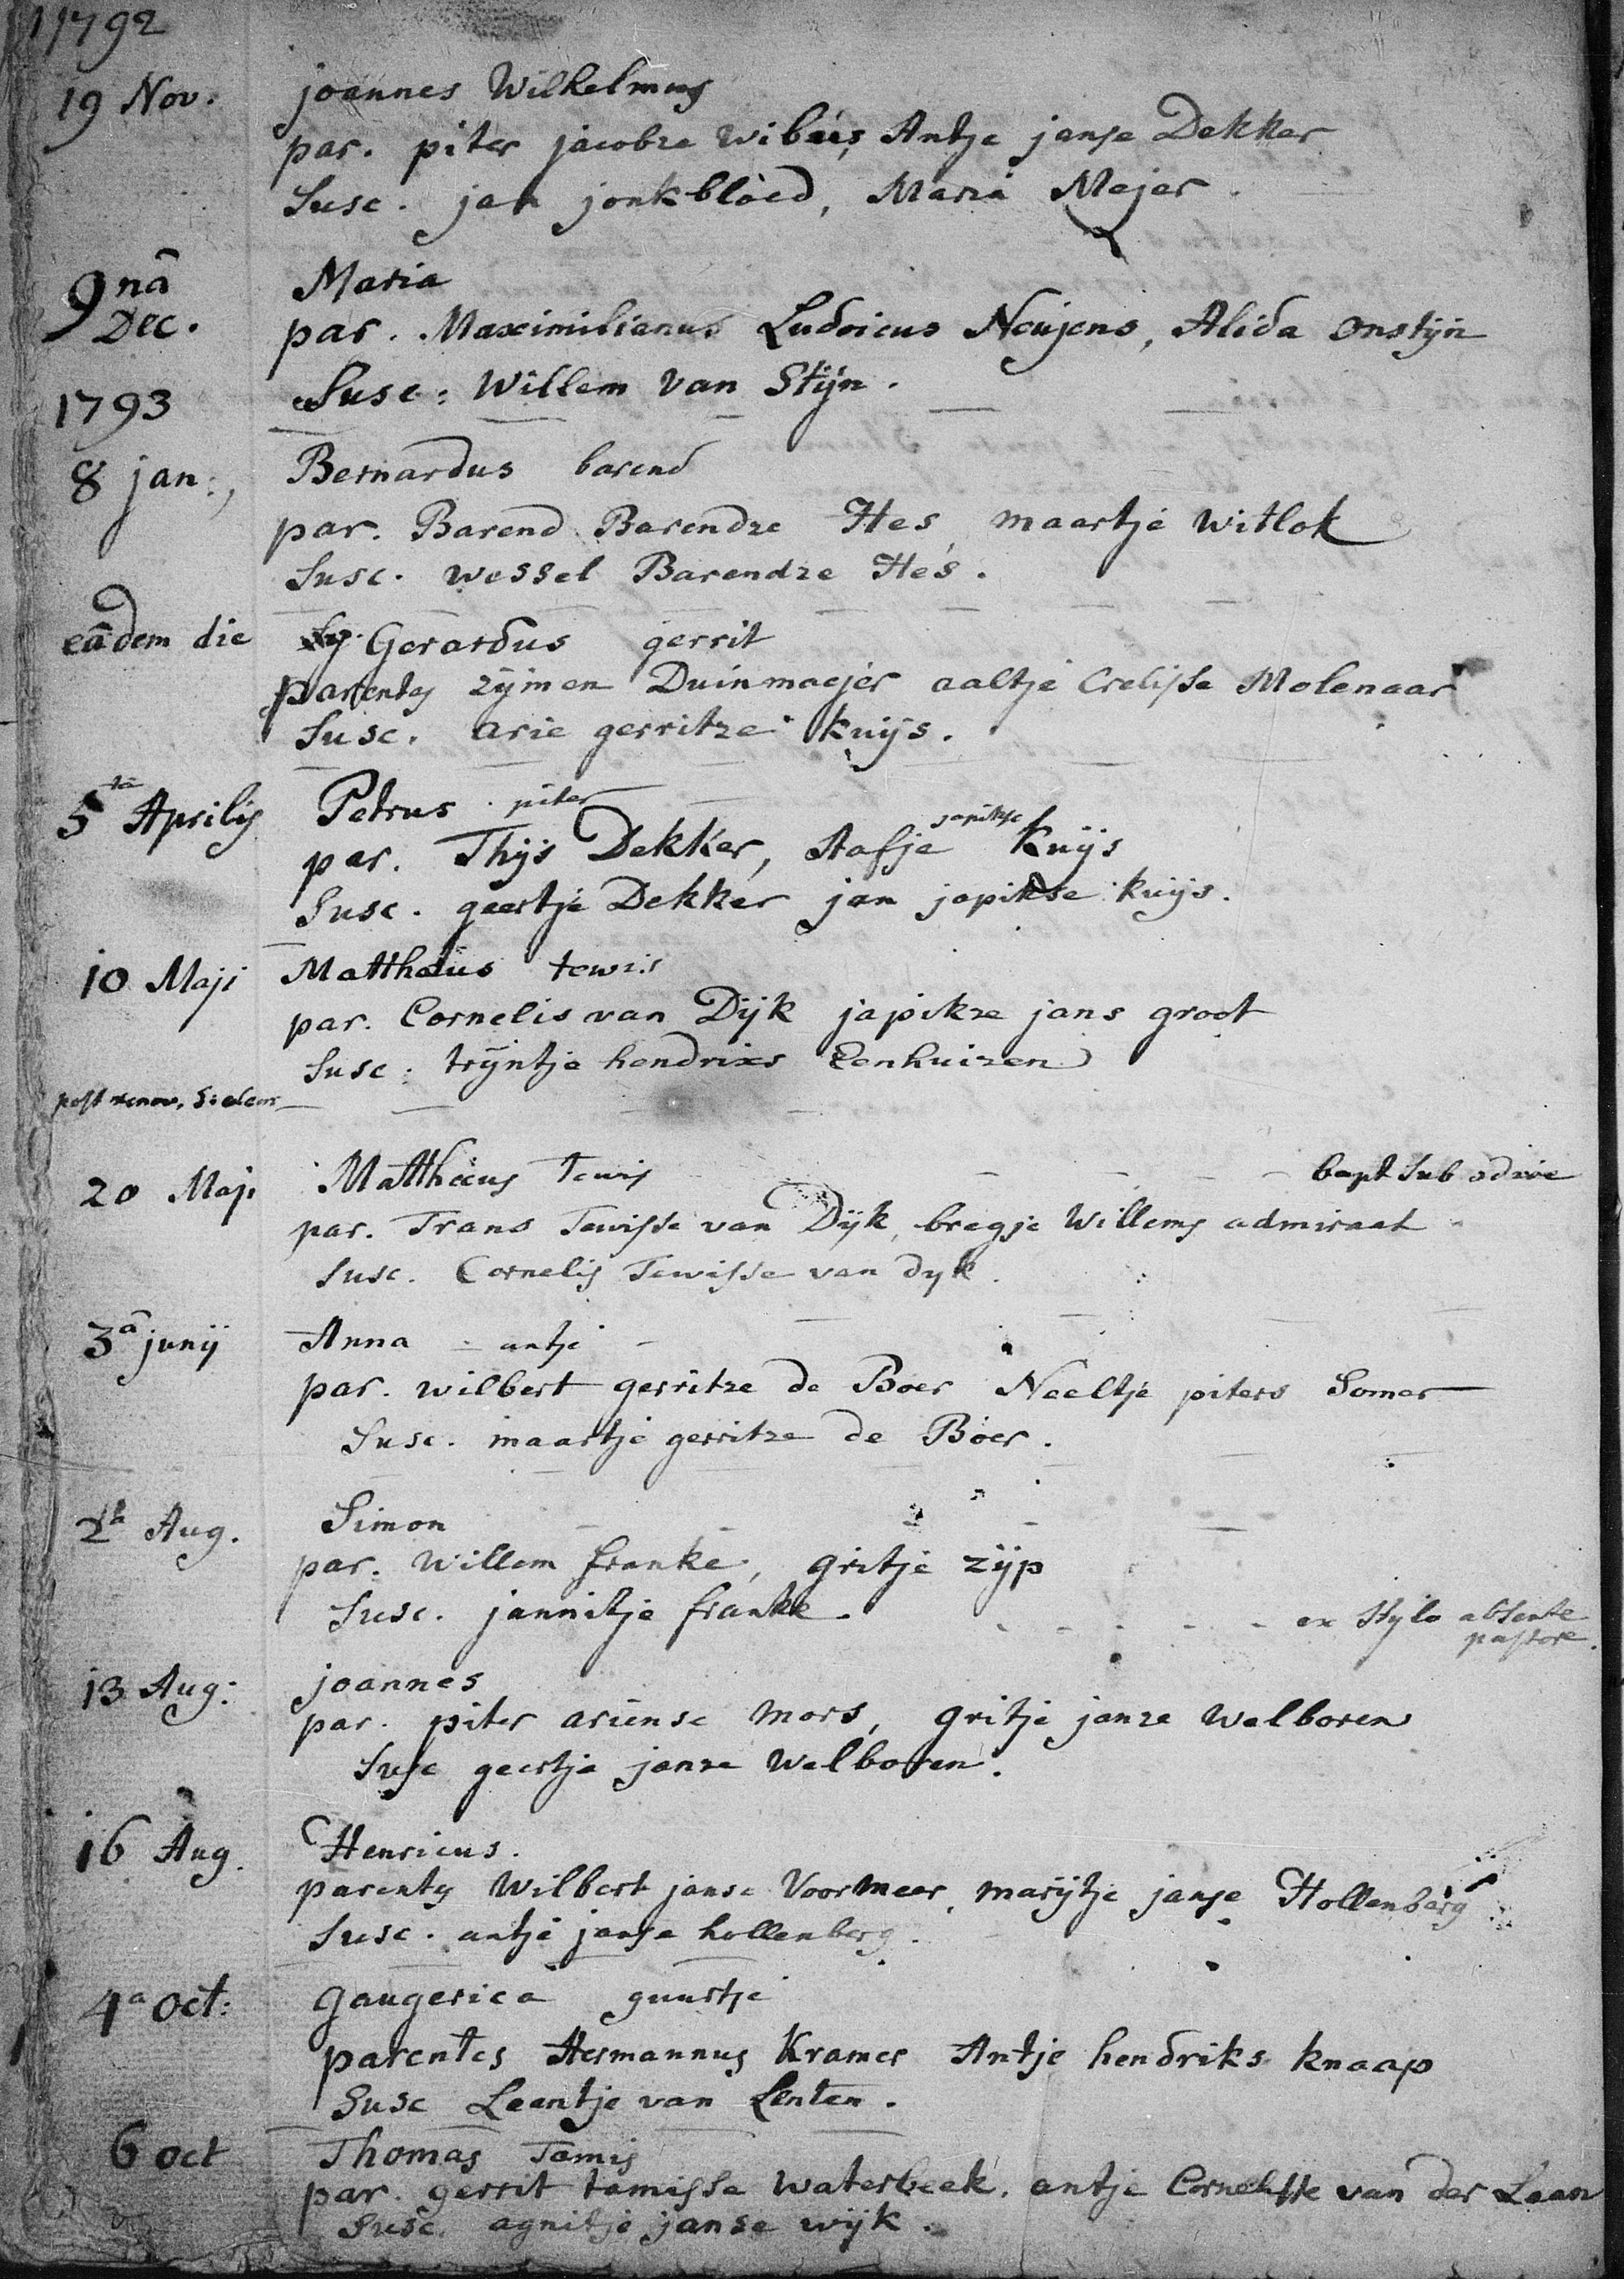 1792
19 Nov. joannes Wilhelmus
par. piter jacobze wibies, Antje janse Dekker
Susc. jan jonkbloed, Maria Mejer.
9nâ Dec. Maria
par. Maximilianus Ludoicus Neujens, Alida onstijn
Susc: Willem Van Stijn.
1793
8 jan:, Bernardus barend
par. Barend Barendze Hes, maartje Witlok
Susc. wessel Barendze Hes.
eâdem die Gerardus gerrit
parentes zijmen Duinmaejer aaltje Crelisse Molenaar
Susc. arie gerritze kuijs.
5ta Aprilis Petrus piter
par. Thijs Dekker, Aafje japikse Kuijs
Susc. geertje Dekker jan japikse kuijs.
10 Maji Matthaeus tewis
par. Cornelis van Dijk japikze jans groot
Susc: trijntje hendrixs Eenhuizen
post renov.
20 Maji Matthaeus Tewis bapt sub
par. Frans Tewisse van Dijk, bregje Willems admiraal
Susc. Cornelis Tewisse van dyk.
3â junij Anna antje
par. wilbert gerritze de Boer Neeltje piters Somer
Susc. maartje gerritze de Boer.
2da Aug. Simon
par. Willem franke, gritje zijp
Susc. jannitje franke. ex Stylo absente
pastore.
13 Aug: joannes
par. piter ariense mors, gritje janze Welboren
Susc geertje janze Welboren.
16 Aug. Henricus.
parentes Wilbert janse Voormeer, marijtje janse Hollenberg
Susc. antje janse hollenberg.
4a oct: gaugerica guurtje
parentes Hermannus Kramer Antje hendriks knaap
Susc Leentje van Lenten.
6 oct Thomas Tamis
par. gerrit tamisse Waterbeek. antje Cornelisse van der Laan
Susc. agnitje janse wijk.